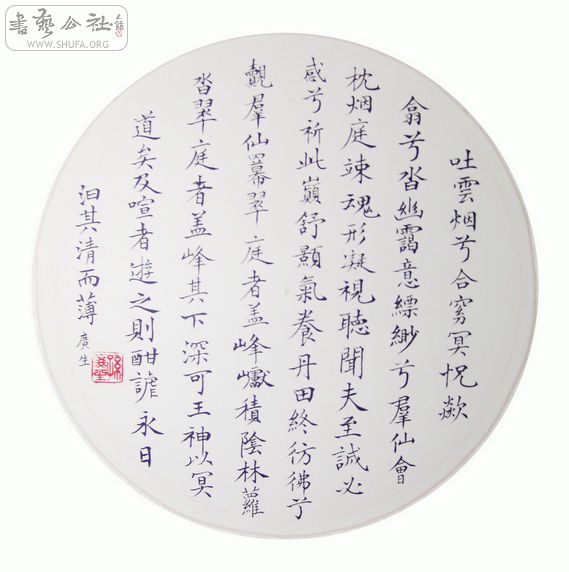 吐雲烟兮合窈冥怳欻
翕兮沓幽靄意縹緲兮羣仙會
枕烟庭竦魂形凝視聽聞夫至誠必
感兮祈此巔舒顥氣養丹田終彷彿兮
覿羣仙冪翠庭者盖峰巘積陰林蘿
沓翠庭者盖峰其下深可王神以冥
道矣及喧者遊之則酣謔永日
汩其清而薄
廣生
書藝公社
WWW.SHUFA.ORG